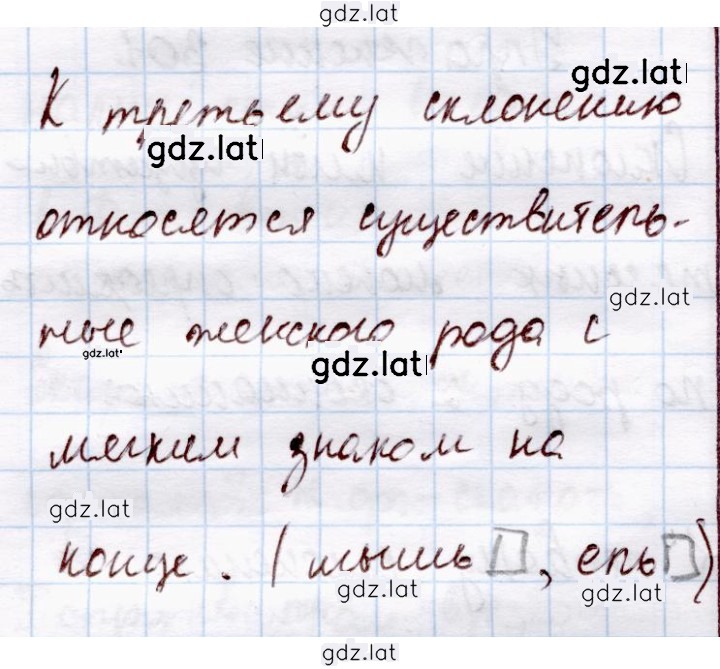 gdz.lat
gdz.lat
К третьему склонению
gdz.lat
относятся существитель-
gdz.lat
ные женского рода с
gdz.lat
gdz.lat
мягким знаком на
gdz.lat
конце. (мышь□, ель□)
gdz.lat
gdz.lat
gdz.lat